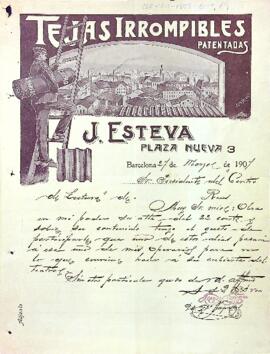 TEJAS IRROMPIBLES
PATENTADAS
J. ESTEVA
PLAZA NUEVA 3
Barcelona 27 de Marzo de 1907
Sr. Presidente del Centro
de Lectura de Reus
Muy Sr. mio: Obra
en mi poder su atta. del 22 cortte. y
sobre su contenido tengo el gusto de
participarle que uno de estos dias pasará
á esa uno de mis operarios para ver
lo que conviene hacer á la cubierta del
teatro.
Sin otro particular quedo de vd. affmo